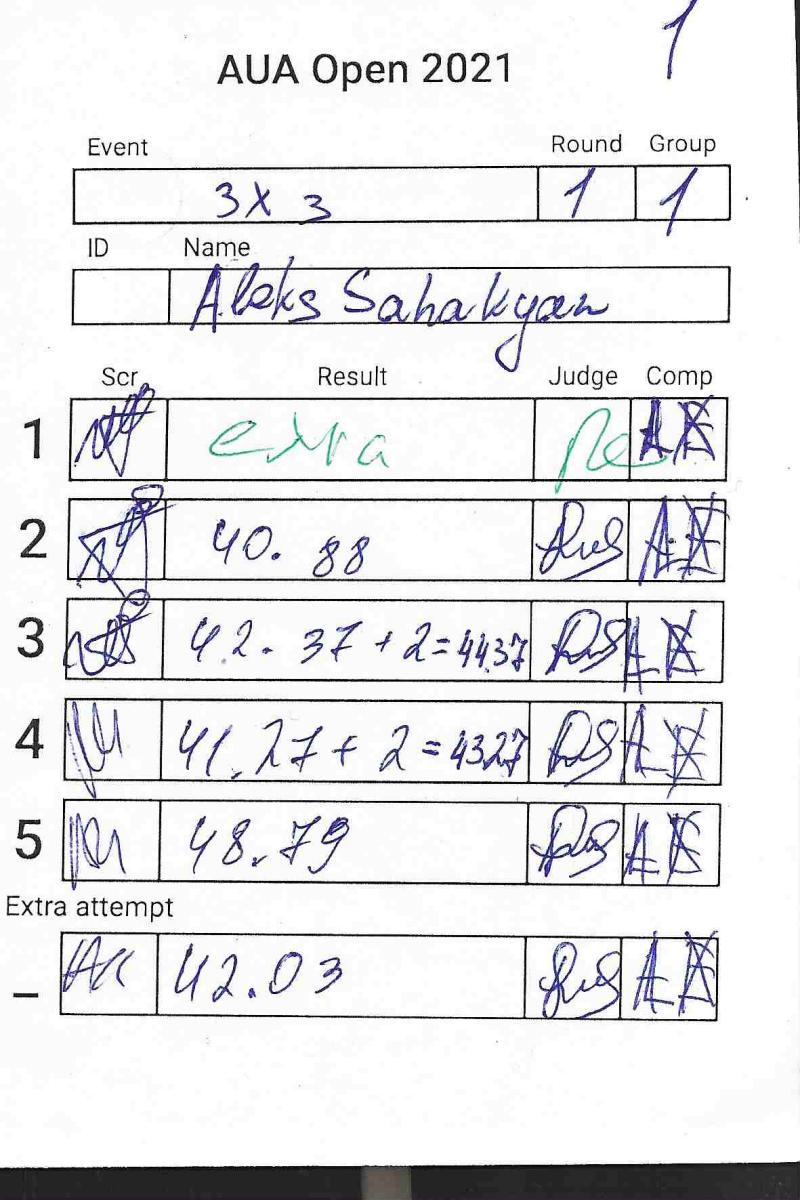 1
AUA Open 2021
Event Round Group
3x3 1 1
ID Name
Aleks Sahakyan
Scr Result Judge Comp
1 extra
2 40.88
3 42.37 + 2 = 44.37
4 41.27 + 2 = 43.27
5 48.79
Extra attempt
_ 42.03